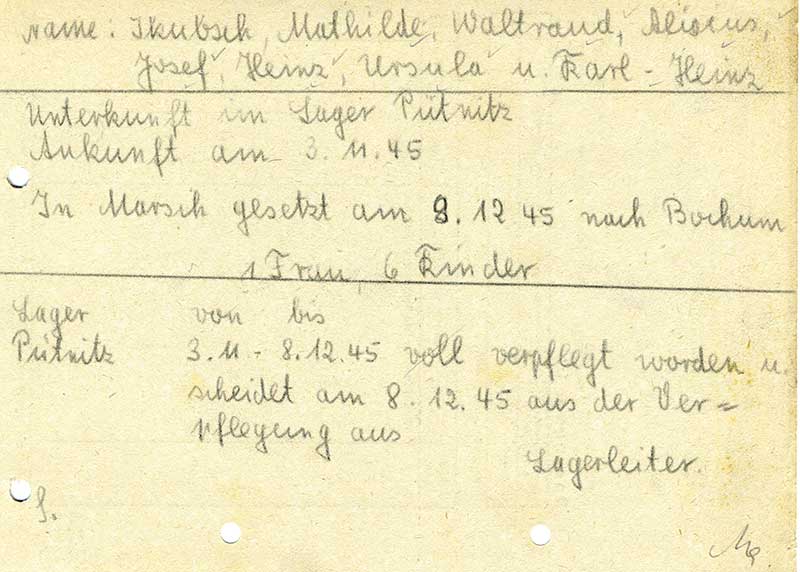 Name: Skubsch, Mathilde, Waltraud, Aloisius,
Josef, Heinz, Ursula u. Karl-Heinz
Unterkunft im Lager Pütnitz
Ankunft am 3.11.45
In Marsch gesetzt am 8.12 45 nach Bochum
1 Frau, 6 Kinder
Lager von bis
Pütnitz 3.11 - 8.12.45 voll verpflegt worden u.
scheidet am 8.12.45 aus der Ver=
pflegung aus
Lagerleiter.